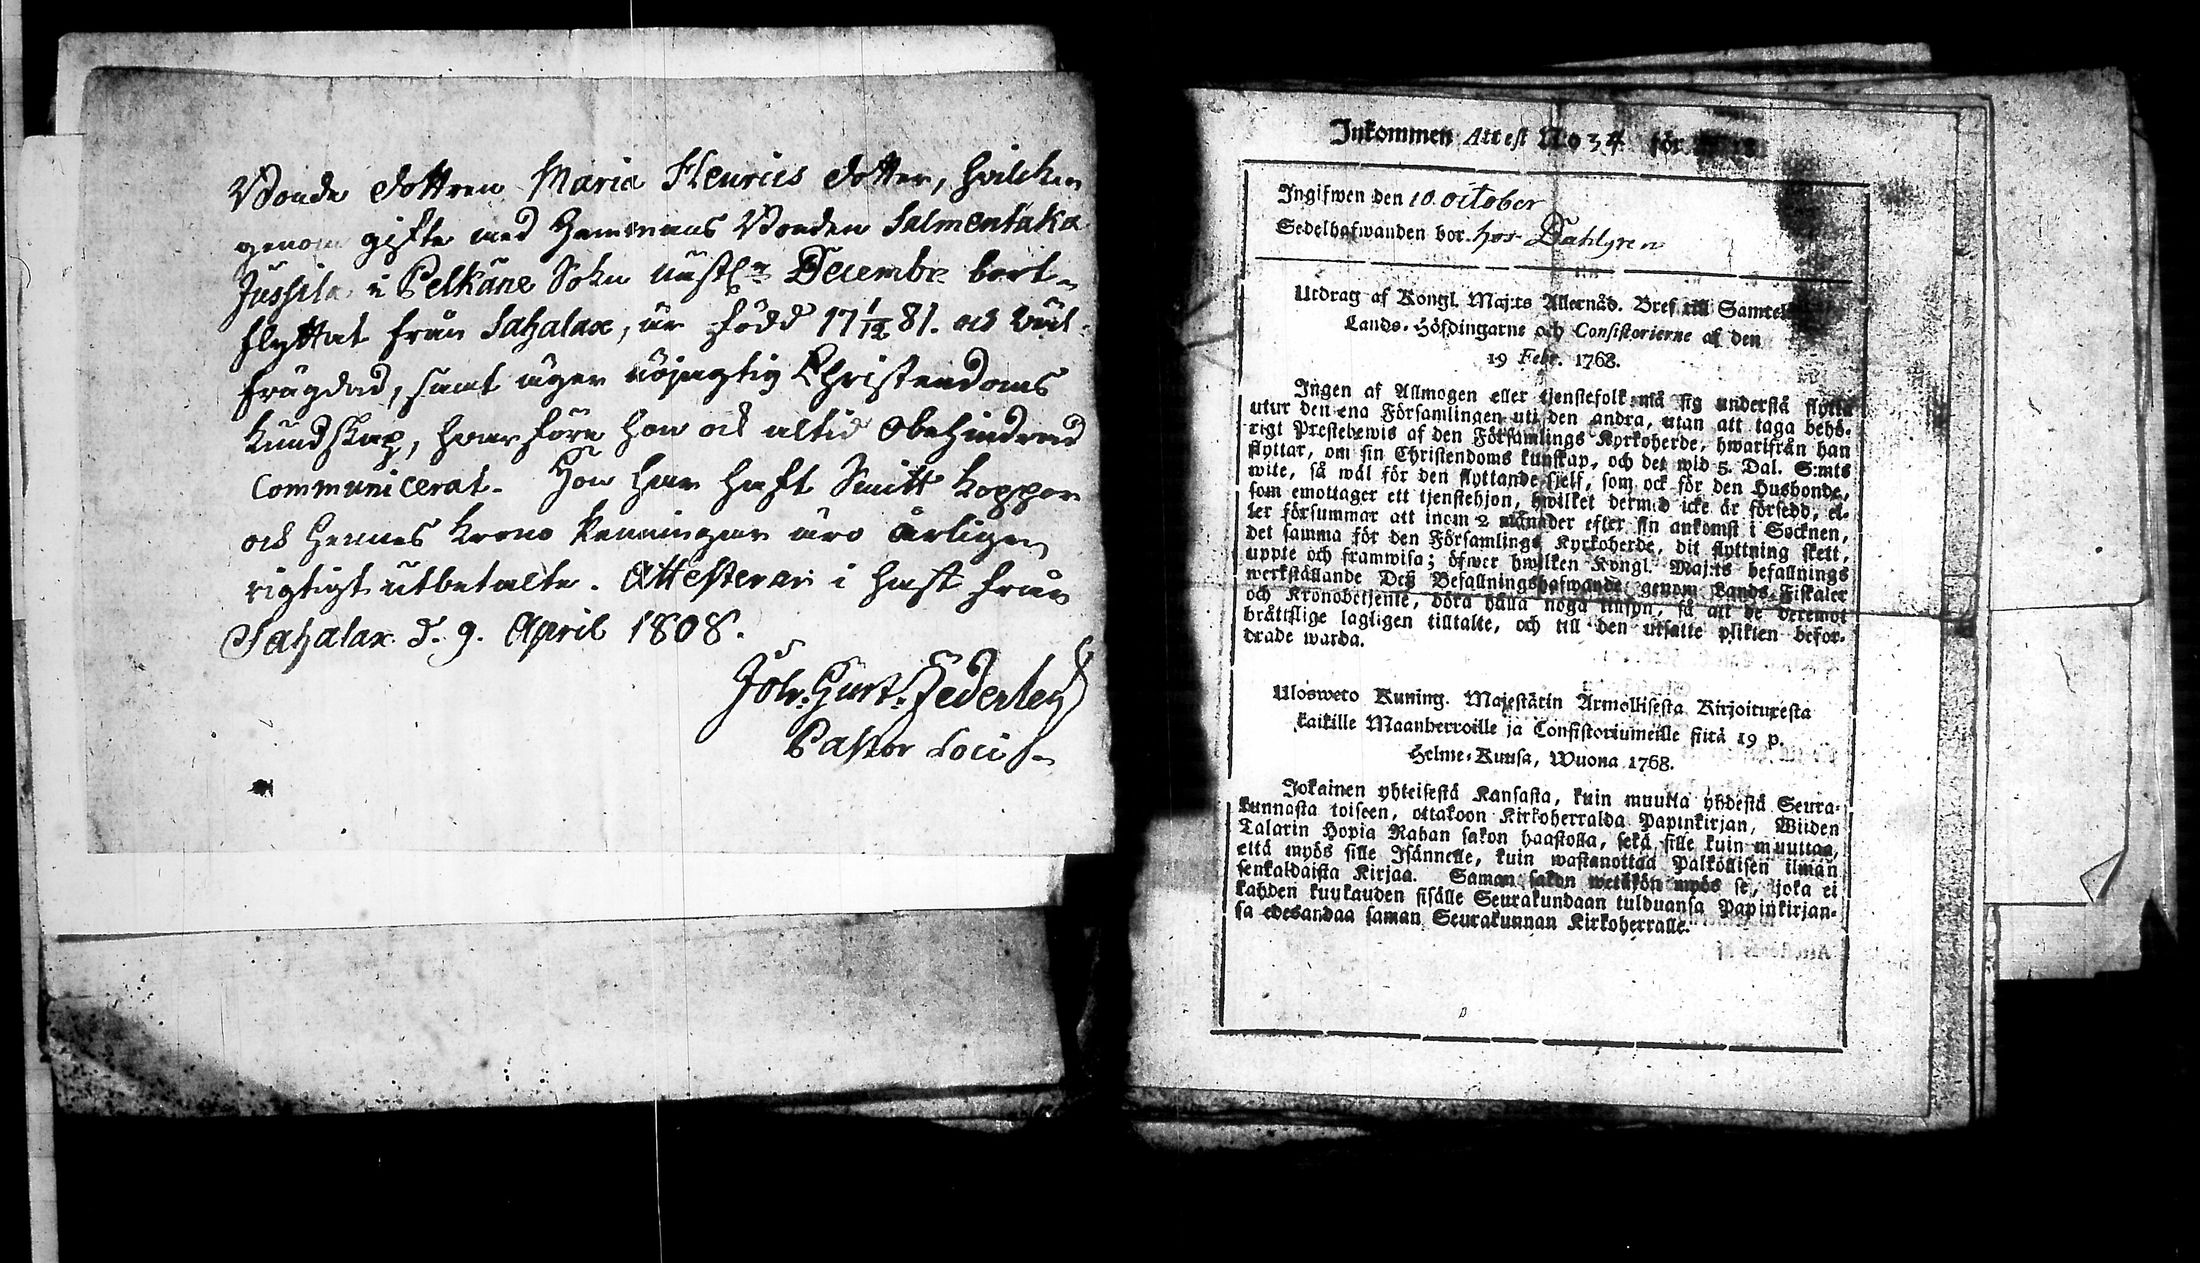 Bonde dottren Maria Henrics dotter, hvilken
genom gifte med Hemmans Bonden Salmentaka
Jussila i Pelkäne Sokn nästl. Decembr. bort-
flyttat från Sahalax, är född 17 1/12 81. och väl
frägdad, samt äger nöjagtig Christendoms
kundskap, hvarföre hon ock altid obehindrad
Communicerat. Hon har haft Smitt koppor
och hennes Krono Penningar äro årligen
rigtigt utbetalte. Attesterar i hast från
Sahalax d. 9. April 1808.
Joh. Gust. Federley
Pastor Loci
Inkommen Attest No 34 för
Ingifwen den 10. october
Sedelhafwanden bor hos Dahlgren
Utdrag af Kongl. Maj:ts Allernåd. Bref till Samtel
Lands-Höfdingarne och Consistorierne af den
19 Febr. 1768.
Ingen af Allmogen eller tjenstefolk må sig understå flytta
utur den ena Församlingen uti den andra, utan att taga behö-
rigt Prestebewis af den Församlings Kyrkoherde, hwarifrån han
flyttar, om sin Christendoms kunskap, och det wid 5. Dal. S:mts
wite, så wäl för den flyttande sjelf, som ock för den Husbonde,
som emottager ett tjenstehjon, hwilket dermed icke är försedd, el-
ler försummar att inom 2 månader efter sin ankomst i Socknen,
det samma för den Församlings Kyrkoherde, dit flyttning skett,
uppte och framwisa; öfwer hwilken Kongl. Maj:ts befallnings
werkställande Deß Befallningshafwande genom Lands-Fiskaler
och Kronobetjente, böra hålla noga insyn, så att de deremot
bråttslige lagligen tilltalte, och till den utsatte plikten befor-
drade warda.
Ulosweto Kuning. Majestätin Armollisesta Kirjoituxesta
kaikille Maanherroille ja Consistoriumeille siitä 19 p.
Helme-Kuusa, Wuona 1768.
Jokainen yhteisestä Kansasta, kuin muutta yhdestä Seura-
kunnasta toiseen, ottakoon Kirkoherralda Papinkirjan, Wiiden
Talarin Hopia Rahan sakon haastolla, sekä sille kuin muuttaa,
että myös sille Isännelle, kuin wastanottaa Palkollisen ilman
senkaldaista Kirjaa. Saman sakon wetäkön myös se, joka ei
kahden kuukauden sisälle Seurakundaan tulduansa Papinkirjan-
sa edesandaa saman Seurakunnan Kirkoherralle.